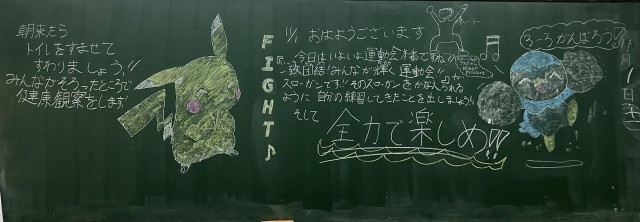 朝来たら
トイレをすませて
すわりましょう!!
みんながそろったところで
健康観察をします
FIGHT♪
11/1 おはようございます
今日はいよいよ運動会本番ですね!
致団結!みんなが輝く運動会!!が
スローガンです!!そのスローガンをかなえられる
ように自分の練習してきたことを出しましょう!
そして
全力で楽しめ!!
3-3がんばろう!
月1日